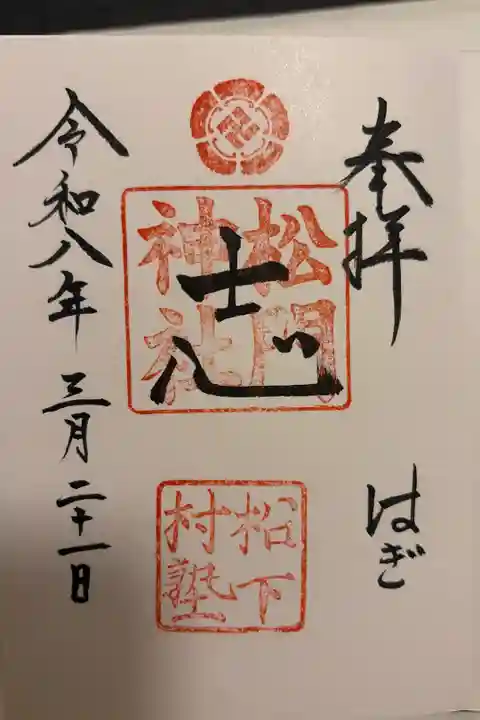 奉拝
はぎ
志
松門
神社
松下
村塾
令和八年三月二十一日